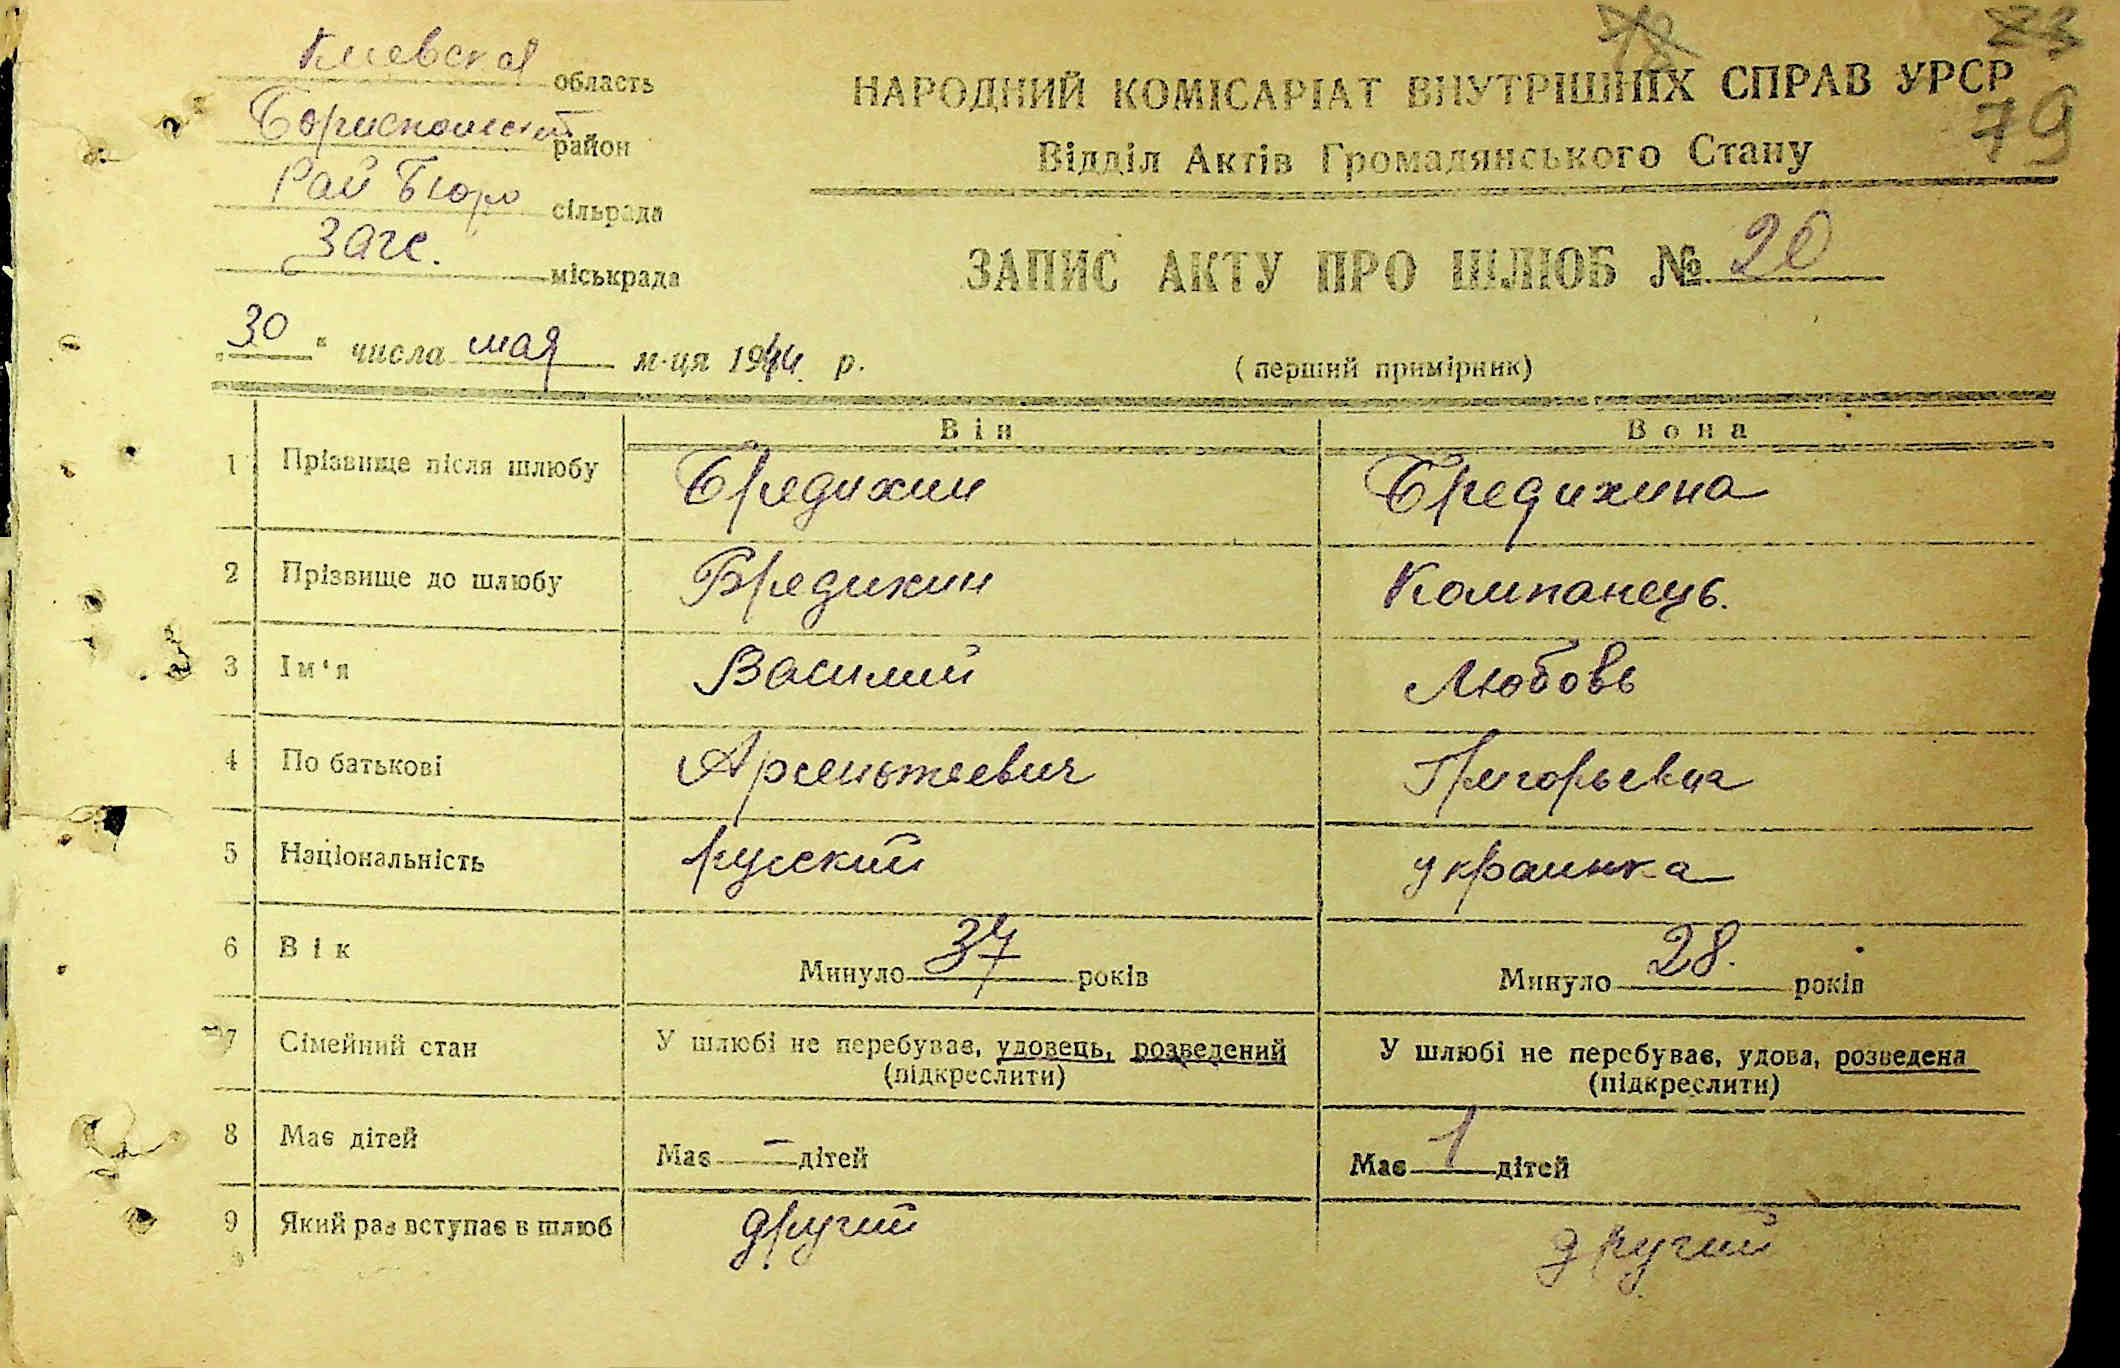 79
Киевская область
Бориспольский район
Рай Бюро сільрада
Загс. міськрада
НАРОДНИЙ КОМІСАРІАТ ВНУТРІШНІХ СПРАВ УРСР
Відділ Актів Громадянського Стану
ЗАПИС АКТУ ПРО ШЛЮБ № 20
"30" числа мая м-ця 1944 р.
(перший примірник)
Він Вона
1 Прізвище після шлюбу Бредихин Бредихина
2 Прізвище до шлюбу Бредихин Компанець.
3 Ім'я Василий Любовь
4 По батькові Арсентьевич Григорьевна
5 Національність русский украинка
6 Вік Минуло 37 років Минуло 28. років
7 Сімейний стан У шлюбі не перебуває, удовець, розведений У шлюбі не перебуває, удова, розведена
(підкреслити) (підкреслити)
8 Має дітей Має — дітей Має 1 дітей
9 Який раз вступає в шлюб другий другий